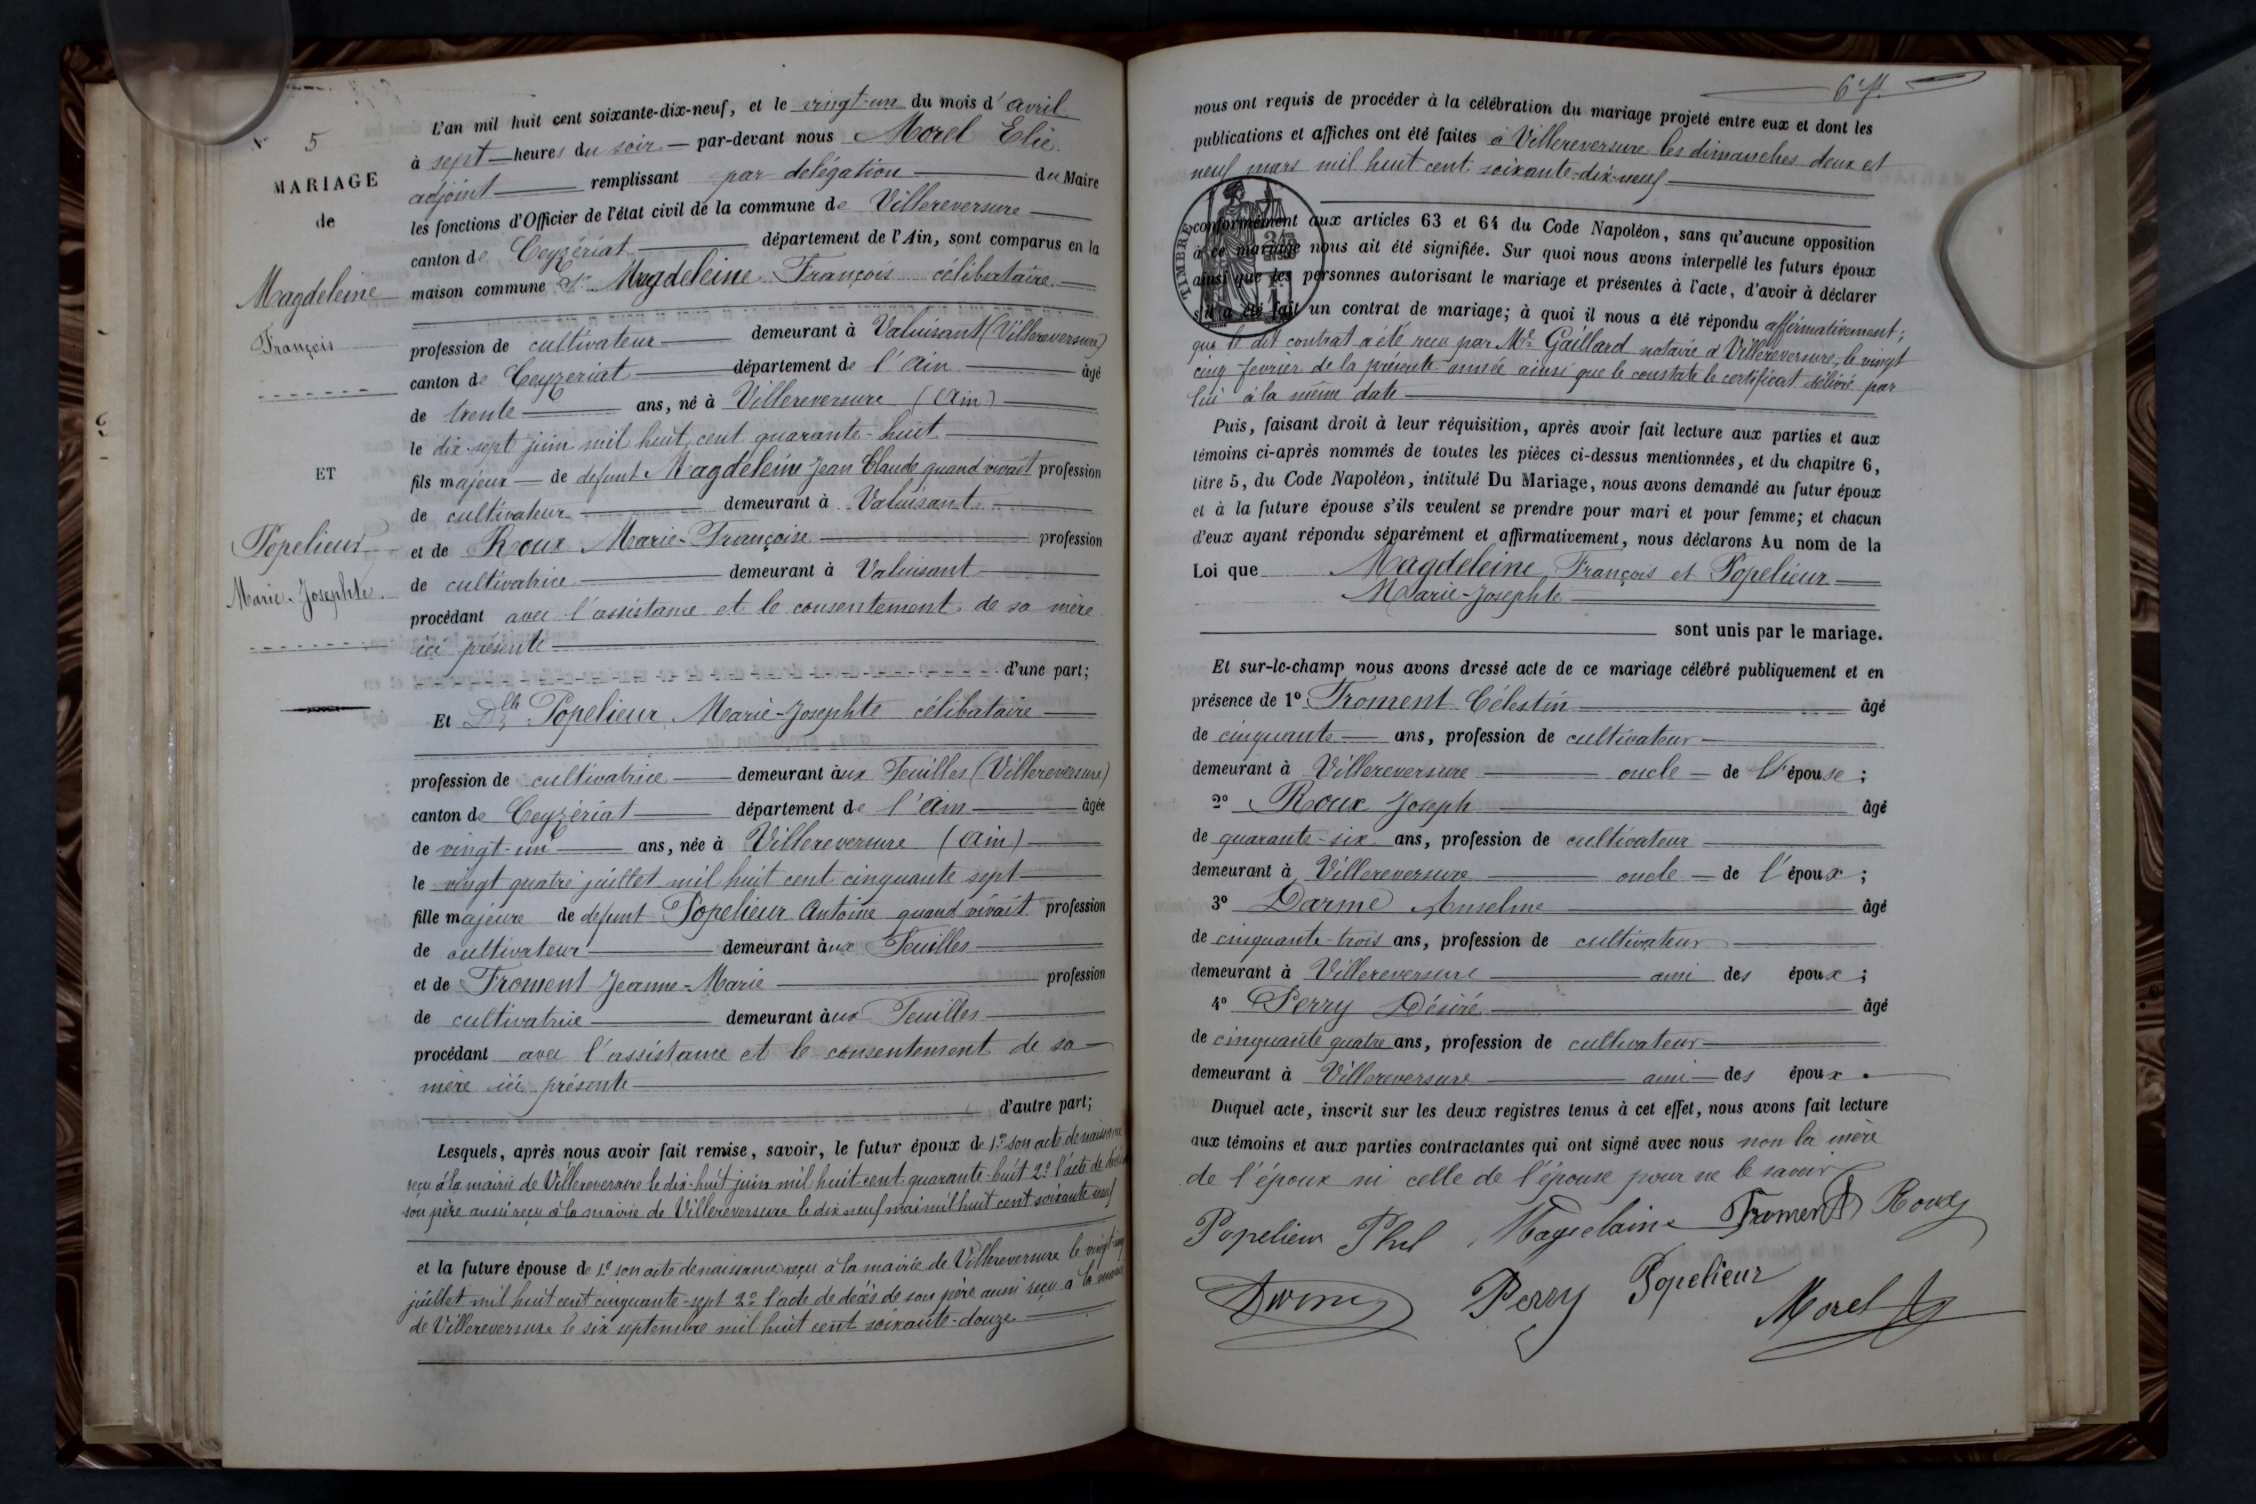 5
MARIAGE
de
Magdeleine
François
ET
Popelieur
Marie-Josephte
L'an mil huit cent soixante-dix-neuf, et le vingt-un du mois d'avril
à sept heures du soir par-devant nous Morel Elie
adjoint remplissant par délégation du Maire
les fonctions d'Officier de l'état civil de la commune de Villereversure
canton de Ceyzériat département de l'Ain, sont comparus en la
maison commune Sr Magdeleine François célibataire
profession de cultivateur demeurant à Valuisant (Villereversure)
canton de Ceyzeriat département de l'Ain âgé
de trente ans, né à Villereversure (Ain)
le dix-sept juin mil huit cent quarante-huit
fils majeur de defunt Magdeleine Jean Claude quand vivait profession
de cultivateur demeurant à Valuisant
et de Roux Marie-Françoise profession
de cultivatrice demeurant à Valuisant
procédant avec l'assistance et le consentement de sa mère
ici présente
d'une part;
Et Dlle Popelieur Marie-Josephte célibataire
profession de cultivatrice demeurant aux Feuilles (Villereversure)
canton de Ceyzériat département de l'Ain âgée
de vingt-un ans, née à Villereversure (Ain)
le vingt quatre juillet mil huit cent cinquante sept
fille majeure de defunt Popelieur Antoine quand vivait profession
de cultivateur demeurant aux Feuilles
et de Froment Jeanne-Marie profession
de cultivatrice demeurant aux Feuilles
procédant avec l'assistance et le consentement de sa
mère ici présente
d'autre part;
Lesquels, après nous avoir fait remise, savoir, le futur époux de 1º son acte de naissance
reçu à la mairie de Villereversure le dix-huit juin mil huit cent quarante-huit 2º l'acte de décès de
son père aussi reçu à la mairie de Villereversure le dix neuf mai mil huit cent soixante neuf
et la future épouse de 1º son acte de naissance reçu à la mairie de Villereversure le vingt-cinq
juillet mil huit cent cinquante-sept 2º l'acte de décès de son père aussi reçu à la mairie
de Villereversure le six septembre mil huit cent soixante-douze
nous ont requis de procéder à la célébration du mariage projeté entre eux et dont les
publications et affiches ont été faites à Villereversure les dimanches deux et
neuf mars mil huit cent soixante-dix-neuf
TIMBRE
conformément aux articles 63 et 64 du Code Napoléon, sans qu'aucune opposition
à ce mariage nous ait été signifiée. Sur quoi nous avons interpellé les futurs époux
ainsi que les personnes autorisant le mariage et présentes à l'acte, d'avoir à déclarer
s'il a été fait un contrat de mariage; à quoi il nous a été répondu affirmativement;
que le dit contrat a été reçu par Me Gaillard notaire à Villereversure, le vingt
cinq fevrier de la présente année ainsi que le constate le certificat délivré par
lui à la même date
Puis, faisant droit à leur réquisition, après avoir fait lecture aux parties et aux
témoins ci-après nommés de toutes les pièces ci-dessus mentionnées, et du chapitre 6,
titre 5, du Code Napoléon, intitulé Du Mariage, nous avons demandé au futur époux
et à la future épouse s'ils veulent se prendre pour mari et pour femme; et chacun
d'eux ayant répondu séparément et affirmativement, nous déclarons Au nom de la
Loi que Magdeleine François et Popelieur
Marie-Josephte
sont unis par le mariage.
Et sur-le-champ nous avons dressé acte de ce mariage célébré publiquement et en
présence de 1º Froment Célestin âgé
de cinquante ans, profession de cultivateur
demeurant à Villereversure oncle de l'épouse;
2º Roux Joseph âgé
de quarante-six ans, profession de cultivateur
demeurant à Villereversure oncle de l'époux;
3º Darme Anselme âgé
de cinquante-trois ans, profession de cultivateur
demeurant à Villereversure ami des époux;
4º Perry Désiré âgé
de cinquante quatre ans, profession de cultivateur
demeurant à Villereversure ami des époux.
Duquel acte, inscrit sur les deux registres tenus à cet effet, nous avons fait lecture
aux témoins et aux parties contractantes qui ont signé avec nous non la mère
de l'époux ni celle de l'épouse pour ne le savoir
Popelieur Magdelaine Froment Roux
Perry Popelieur Morel